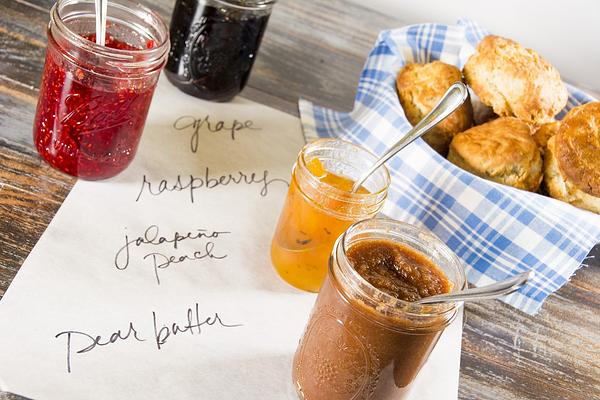 grape
raspberry
jalapeño
peach
pear butter